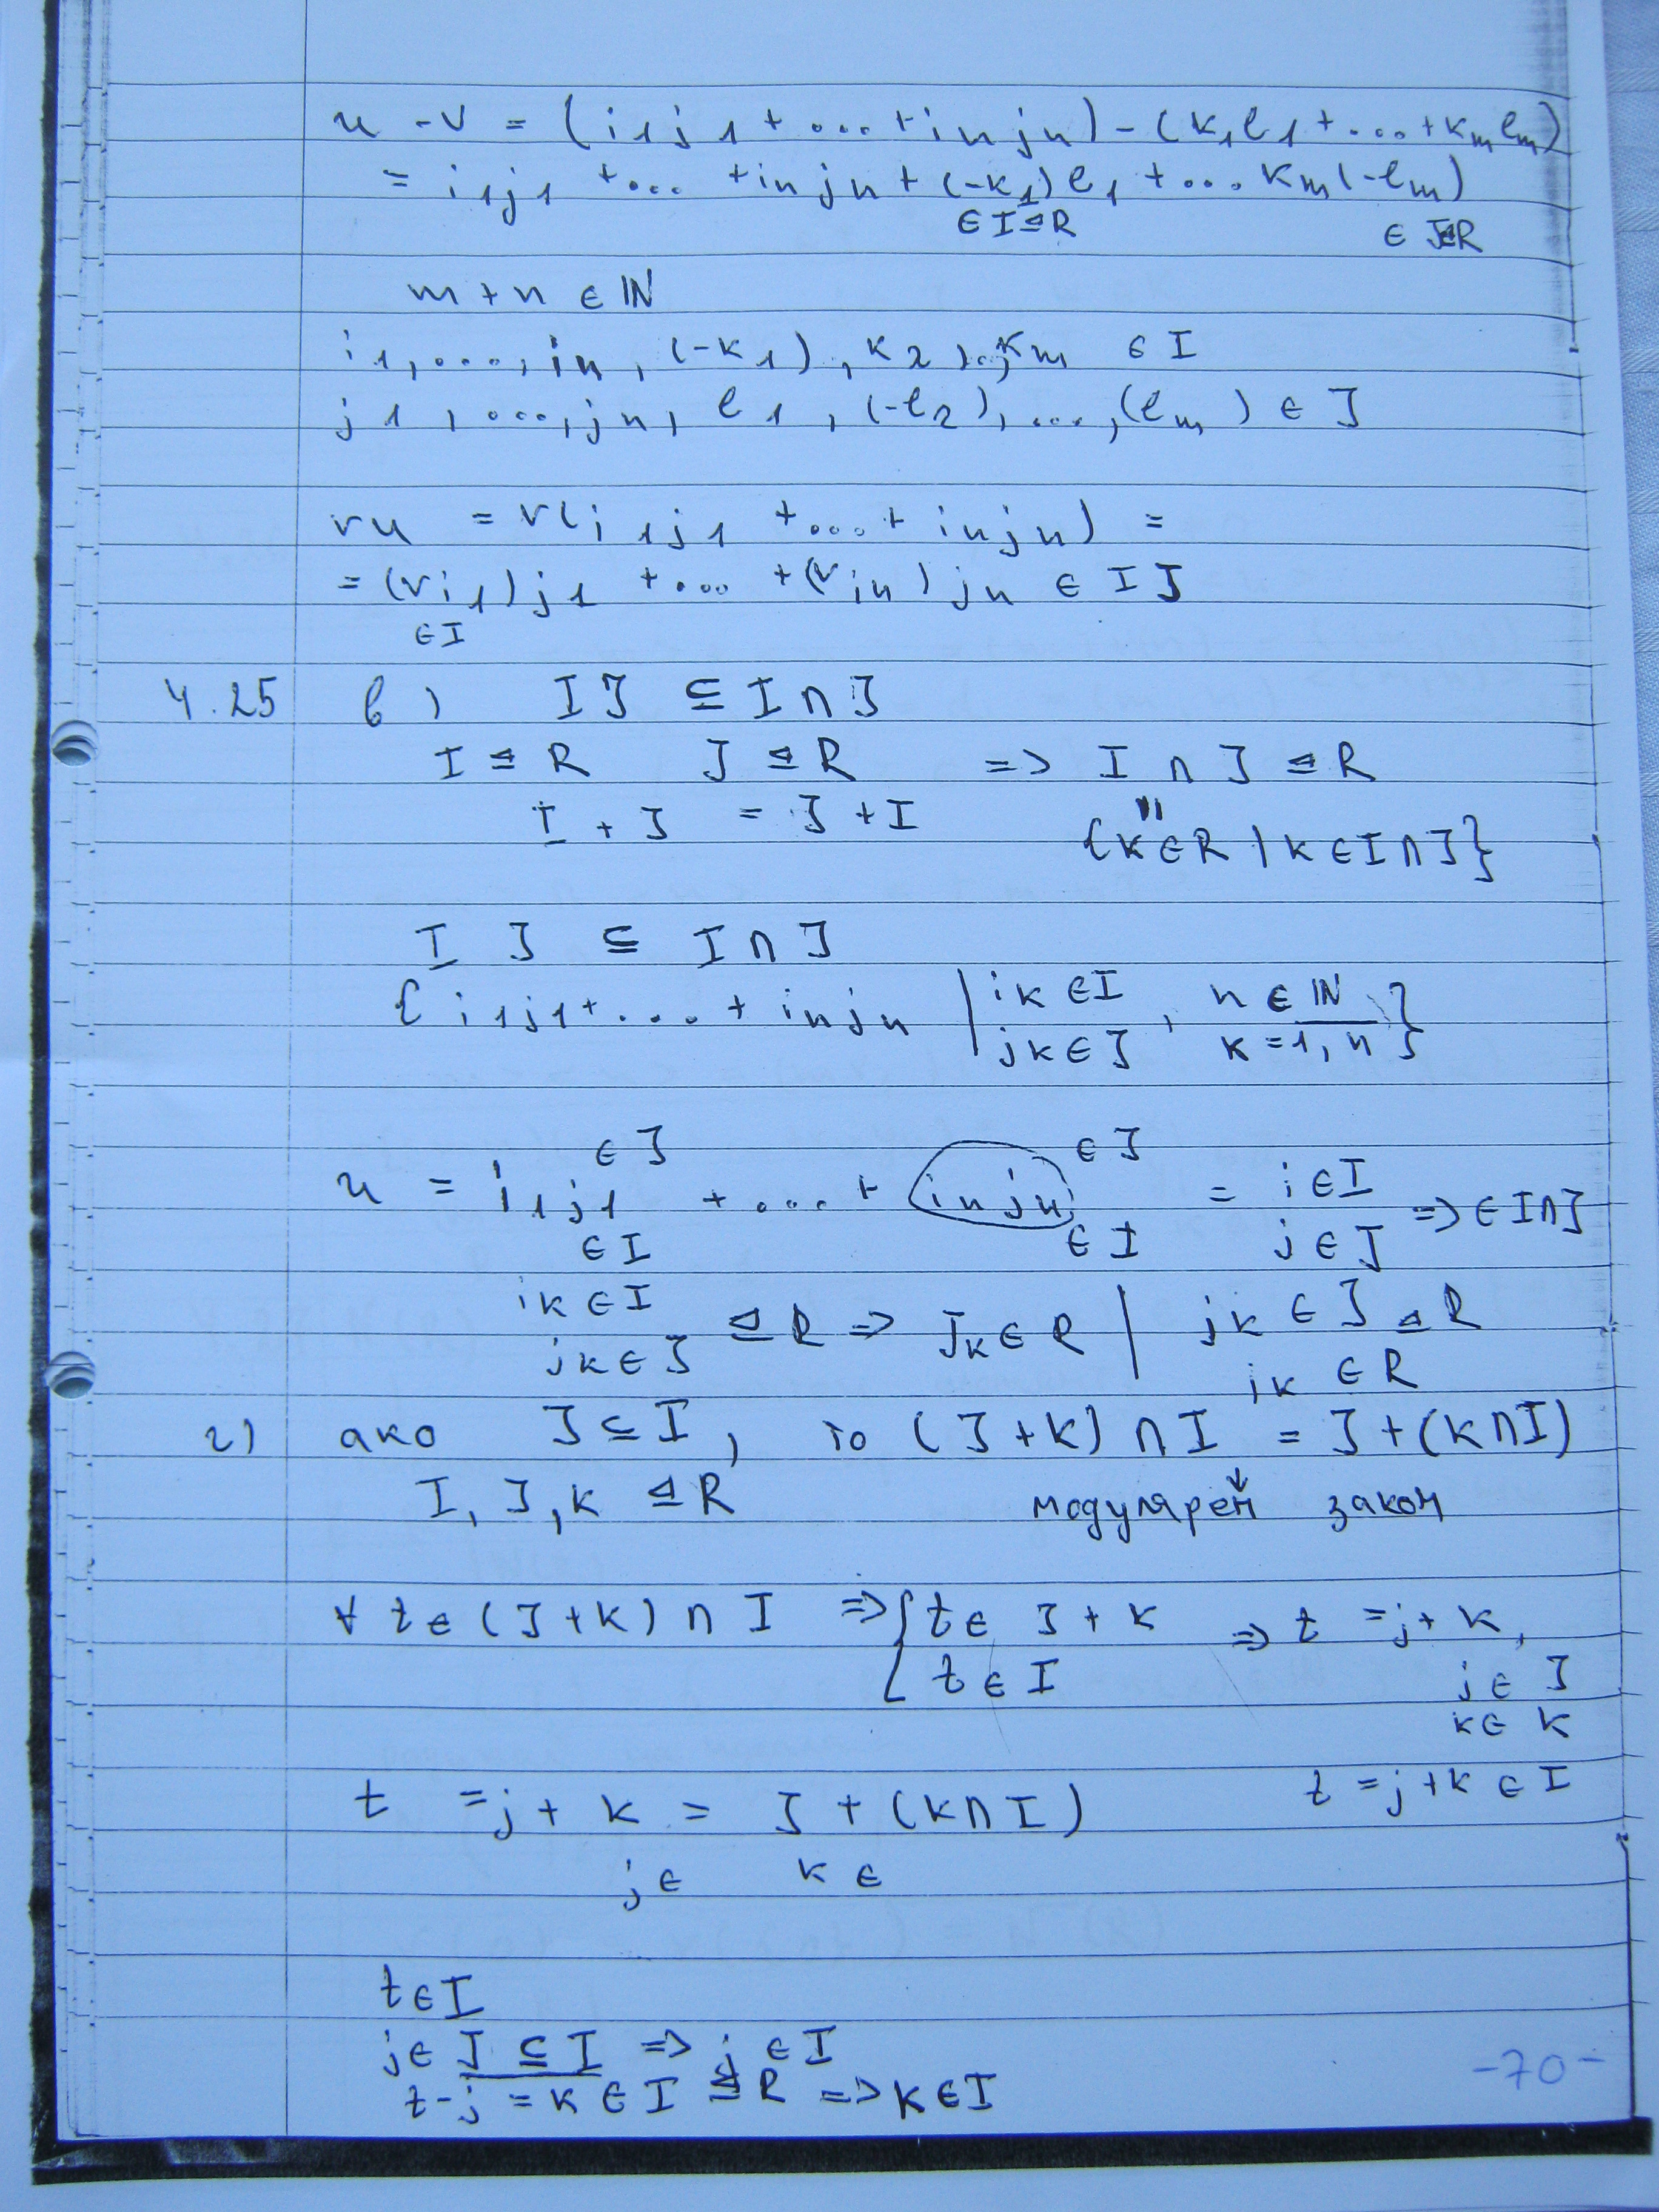 u - v = (i1j1 + ... + injn) - (k1l1 + ... + kmlm)
= i1j1 + ... + injn + (-k1)l1 + ... km(-lm)
∈ I ⊴ R ∈ J ⊴ R
m + n ∈ ℕ
i1, ..., in, (-k1), k2, ..., km ∈ I
j1, ..., jn, l1, (-l2), ..., (lm) ∈ J
ru = r(i1j1 + ... + injn) =
= (ri1)j1 + ... + (rin)jn ∈ IJ
∈ I
4.25 в) IJ ⊆ I ∩ J
I ⊴ R J ⊴ R => I ∩ J ⊴ R
I + J = J + I
{k ∈ R | k ∈ I ∩ J}
I J ⊆ I ∩ J
{i1j1 + ... + injn | ik ∈ I, n ∈ ℕ
jk ∈ J k = 1, n}
∈ J ∈ J
u = i1j1 + ... + injn = i ∈ I => ∈ I ∩ J
∈ I ∈ I j ∈ J
ik ∈ I
jk ∈ J ⊴ R => jk ∈ R | jk ∈ J ⊴ R
ik ∈ R
г) ако J ⊆ I, то (J + K) ∩ I = J + (K ∩ I)
I, J, K ⊴ R модулярен закон
∀ t ∈ (J + K) ∩ I => { t ∈ J + K => t = j + k,
t ∈ I j ∈ J
k ∈ K
t = j + k = J + (K ∩ I) t = j + k ∈ I
j ∈ k ∈
t ∈ I
j ∈ J ⊆ I => j ∈ I
t - j = k ∈ I ⊴ R => k ∈ I
-70-